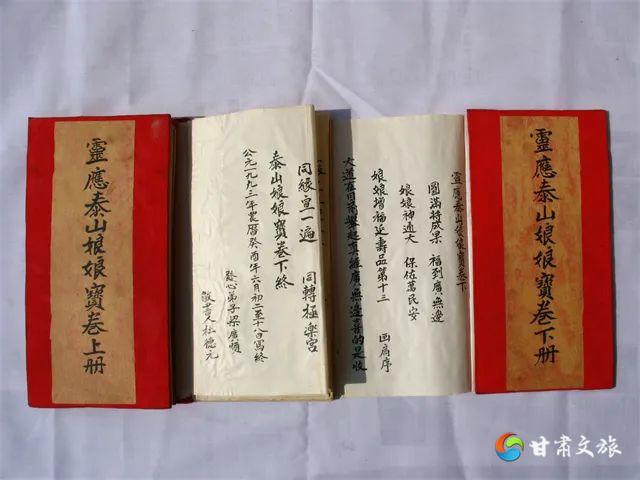 靈應泰山娘娘寶卷上冊
同緣宣一遍 同轉極楽宮
泰山娘娘寶卷下終
公元一九九三年農曆癸酉年六月初二至十八日寫終
發心弟子梁唐頎
敬書人杜德元
靈應泰山娘娘寶卷下
圓滿特咸果 福到廣無邊
娘娘神通大 保佑萬民安
娘娘增福延壽品第十三 西扇序
大道在目前 無邊 的是收
靈應泰山娘娘寶卷下册
甘肃文旅